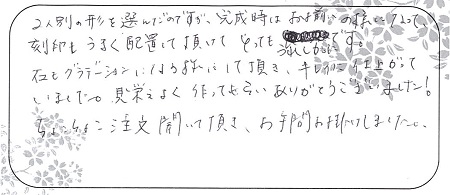 2人別の形を選んだのですが、完成時はお揃いの様になって
刻印もうまく配置して頂けて とっても うれしかったです。
石もグラデーションになるようにして頂き、キレイに仕上がって
いました。見栄えよく作ってもらいありがとうございました!
ちょこちょこ注文聞いて頂き、お手間お掛けしました。